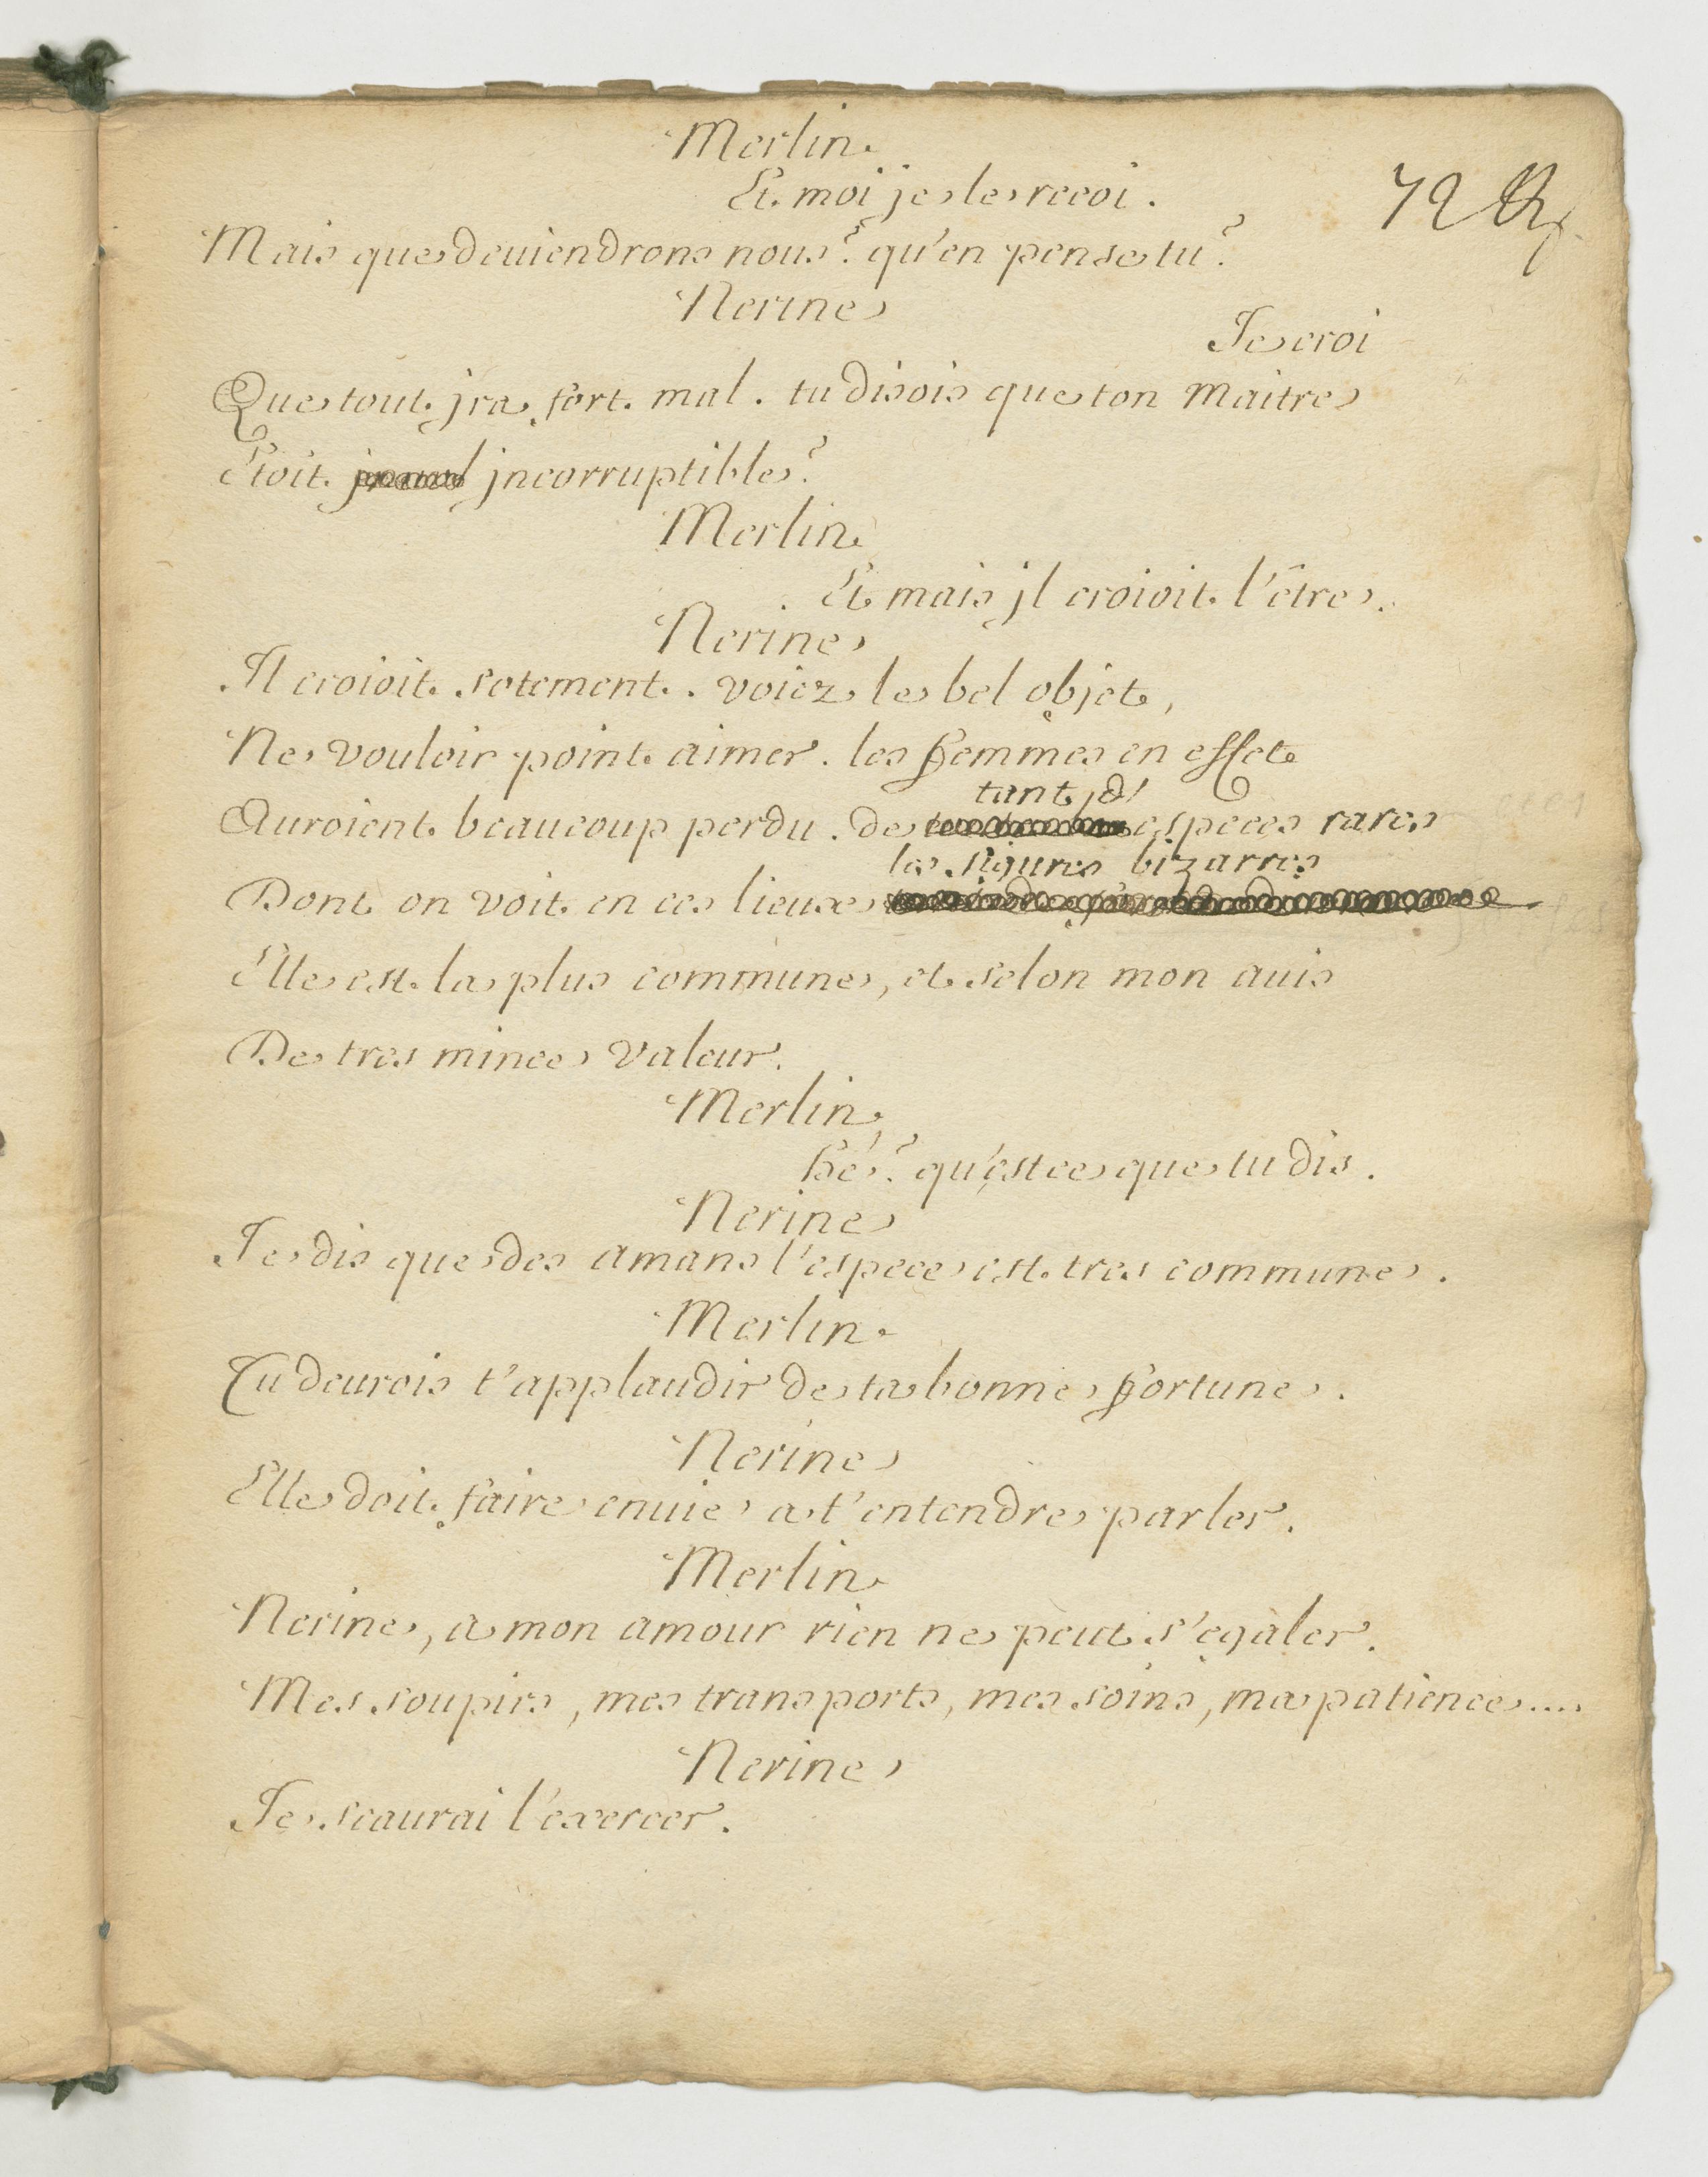 Merlin
Et moi je le recoi.
72
Mais que deuiendrons nous? qu'en pense tu?
Nerine
Je croi
Que tout jra fort mal. tu disois que ton Maitre
Etoit jncorruptible?
Merlin
Et mais jl croioit l'être.
Nerine
Il croioit sotement. voiez le bel objet,
Ne vouloir point aimer. les femmes en effet
tant d'
Auroient beaucoup perdu. de especes rares
les figures bizarres
Dont on voit en ces lieux
Elle est la plus commune, et selon mon auis
De tres mince valeur.
Merlin
hé? qu'est ce que tu dis.
Nerine
Je dis que des amans l'espece est tres commune.
Merlin
Tu deurois t'applaudir de ta bonne fortune.
Nerine
Elle doit faire enuie a t'entendre parler.
Merlin
Nerine, a mon amour rien ne peut s'egaler.
Mes soupirs, mes transports, mes soins, ma patience....
Nerine
Je scaurai l'exercer.